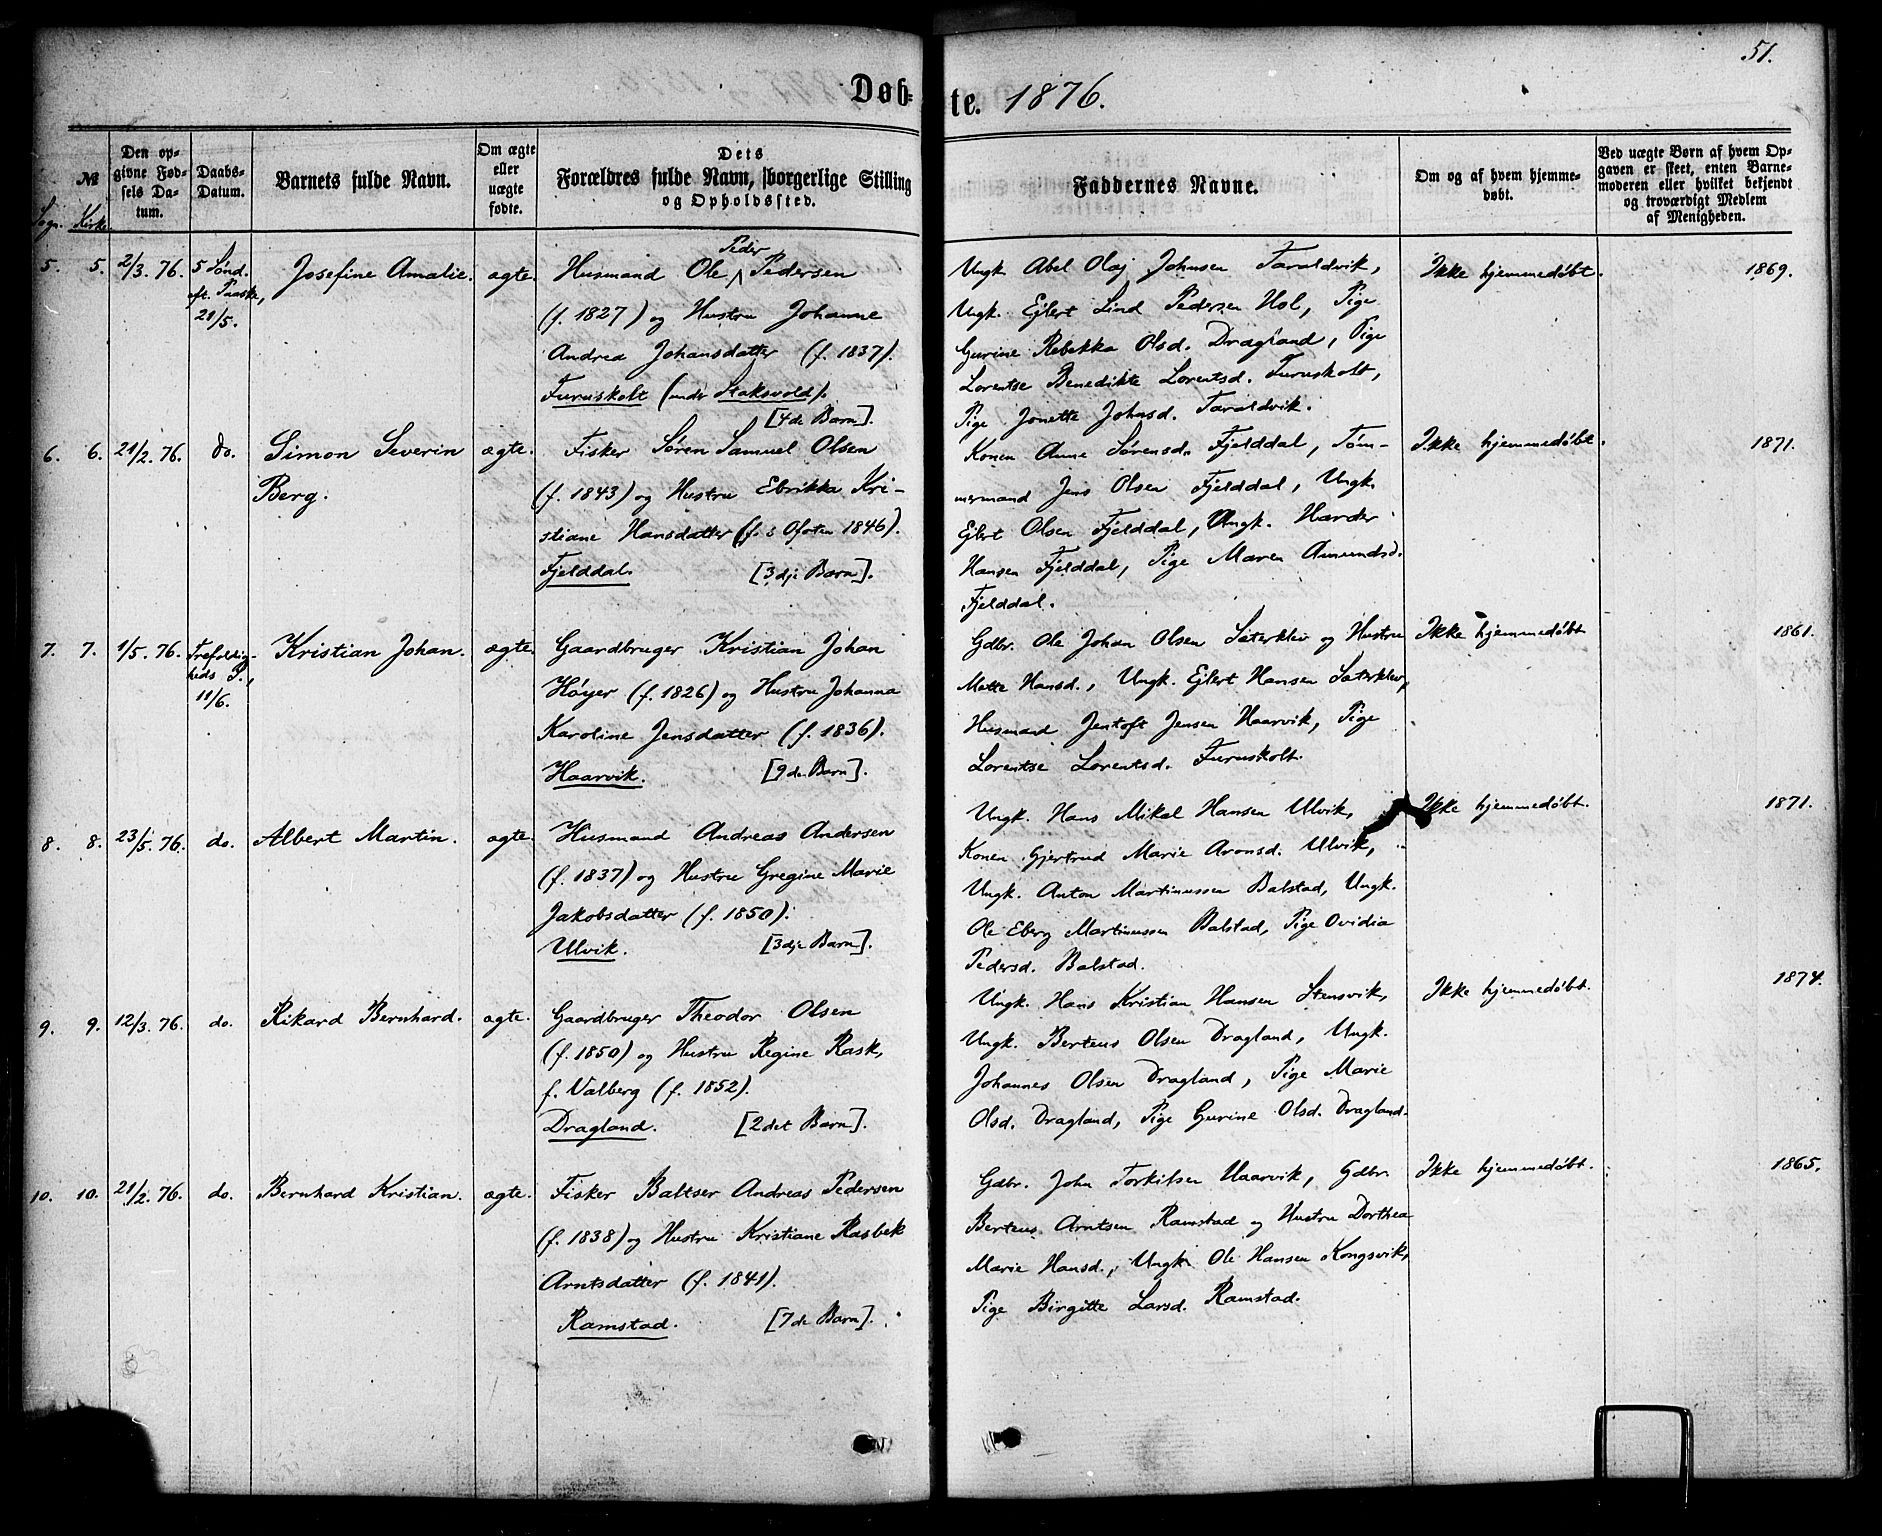 51.
Døb-te. 1876.
Sogn. № Kirke.
Den opgivne Fødsels Datum.
Daabs-Datum.
Barnets fulde Navn.
Om ægte eller uægte fødte.
Dets Forældres fulde Navn, borgerlige Stilling og Opholdssted.
Faddernes Navne.
Om og af hvem hjemmedøbt.
Ved uægte Børn af hvem Opgaven er skeet, enten Barnemoderen eller hvilket bekjendt og troværdigt Medlem af Menigheden.
5. 5. 2/3. 76. 5 Sønd. eft. Paaske, 21/5. Josefine Amalie. ægte.
Husmand Ole Peder Pedersen
(f. 1827) og Hustru Johanne
Andrea Johansdatter (f. 1837).
Furuskolt (under Staksvold).
[4de Barn].
Ungk. Abel Olaj Johnsen Taraldvik,
Ungk. Ejlert Lind Pedersen Hol, Pige
Gurine Rebekka Olsd. Dragland, Pige
Lorentse Benedikte Lorentsd. Furuskolt,
Pige Jonette Johnsd. Taraldvik.
Ikke hjemmedøbt. 1869.
6. 6. 21/2. 76. do. Simon Severin
Berg. ægte.
Fisker Søren Samuel Olsen
(f. 1843) og Hustru Ebrikka Kri-
stiane Hansdatter (f. i Ofoten 1846).
Fjelddal. [3dje Barn].
Konen Anne Sørensd. Fjelddal, Tøm-
mermand Jens Olsen Fjelddal, Ungk.
Ejlert Olsen Fjelddal, Ungk. Harder
Hansen Fjelddal, Pige Maren Amundsd.
Fjelddal.
Ikke hjemmedøbt. 1871.
7. 7. 1/5. 76. Trefoldig-
heds S., 11/6. Kristian Johan. ægte.
Gaardbruger Kristian Johan
Høyer (f. 1826) og Hustru Johanna
Karoline Jensdatter (f. 1836).
Haarvik. [9de Barn].
Gdbr. Ole Johan Olsen Saterklev og Hustru
Mette Hansd., Ungk. Ejlert Hansen Saterklev,
Husmand Jentoft Jensen Haarvik, Pige
Lorentse Lorentsd. Furuskolt.
Ikke hjemmedøbt 1861.
8. 8. 23/5. 76. do. Albert Martin. ægte.
Husmand Andreas Andersen
(f. 1837) og Hustru Gregine Marie
Jakobsdatter (f. 1850).
Ulvik. [3dje Barn].
Ungk. Hans Mikal Hansen Ulvik,
Konen Gjertrud Marie Aronsd. Ulvik,
Ungk. Anton Martinussen Balstad, Ungk.
Ole Eberg Martinussen Balstad, Pige Ovidia
Pedersd. Balstad.
Ikke hjemmedøbt. 1871.
9. 9. 12/3. 76. do. Rikard Bernhard. ægte.
Gaardbruger Theodor Olsen
(f. 1850) og Hustru Regine Rask,
f. Valberg (f. 1852).
Dragland. [2det Barn].
Ungk. Hans Kristian Hansen Stensvik,
Ungk. Berteus Olsen Dragland, Ungk.
Johannes Olsen Dragland, Pige Marie
Olsd. Dragland, Pige Gurine Olsd. Dragland.
Ikke hjemmedøbt. 1874.
10. 10. 21/2. 76. do. Bernhard Kristian. ægte.
Fisker Baltser Andreas Pedersen
(f. 1838) og Hustru Kristiane Rasbek
Arntsdatter (f. 1841).
Ramstad. [7de Barn].
Gdbr. John Torkilsen Haarvik, Gdbr.
Berteus Arntsen Ramstad og Hustru Dorthea
Marie Hansd., Ungk. Ole Hansen Kongsvik,
Pige Birgitte Larsd. Ramstad.
Ikke hjemmedøbt. 1865.